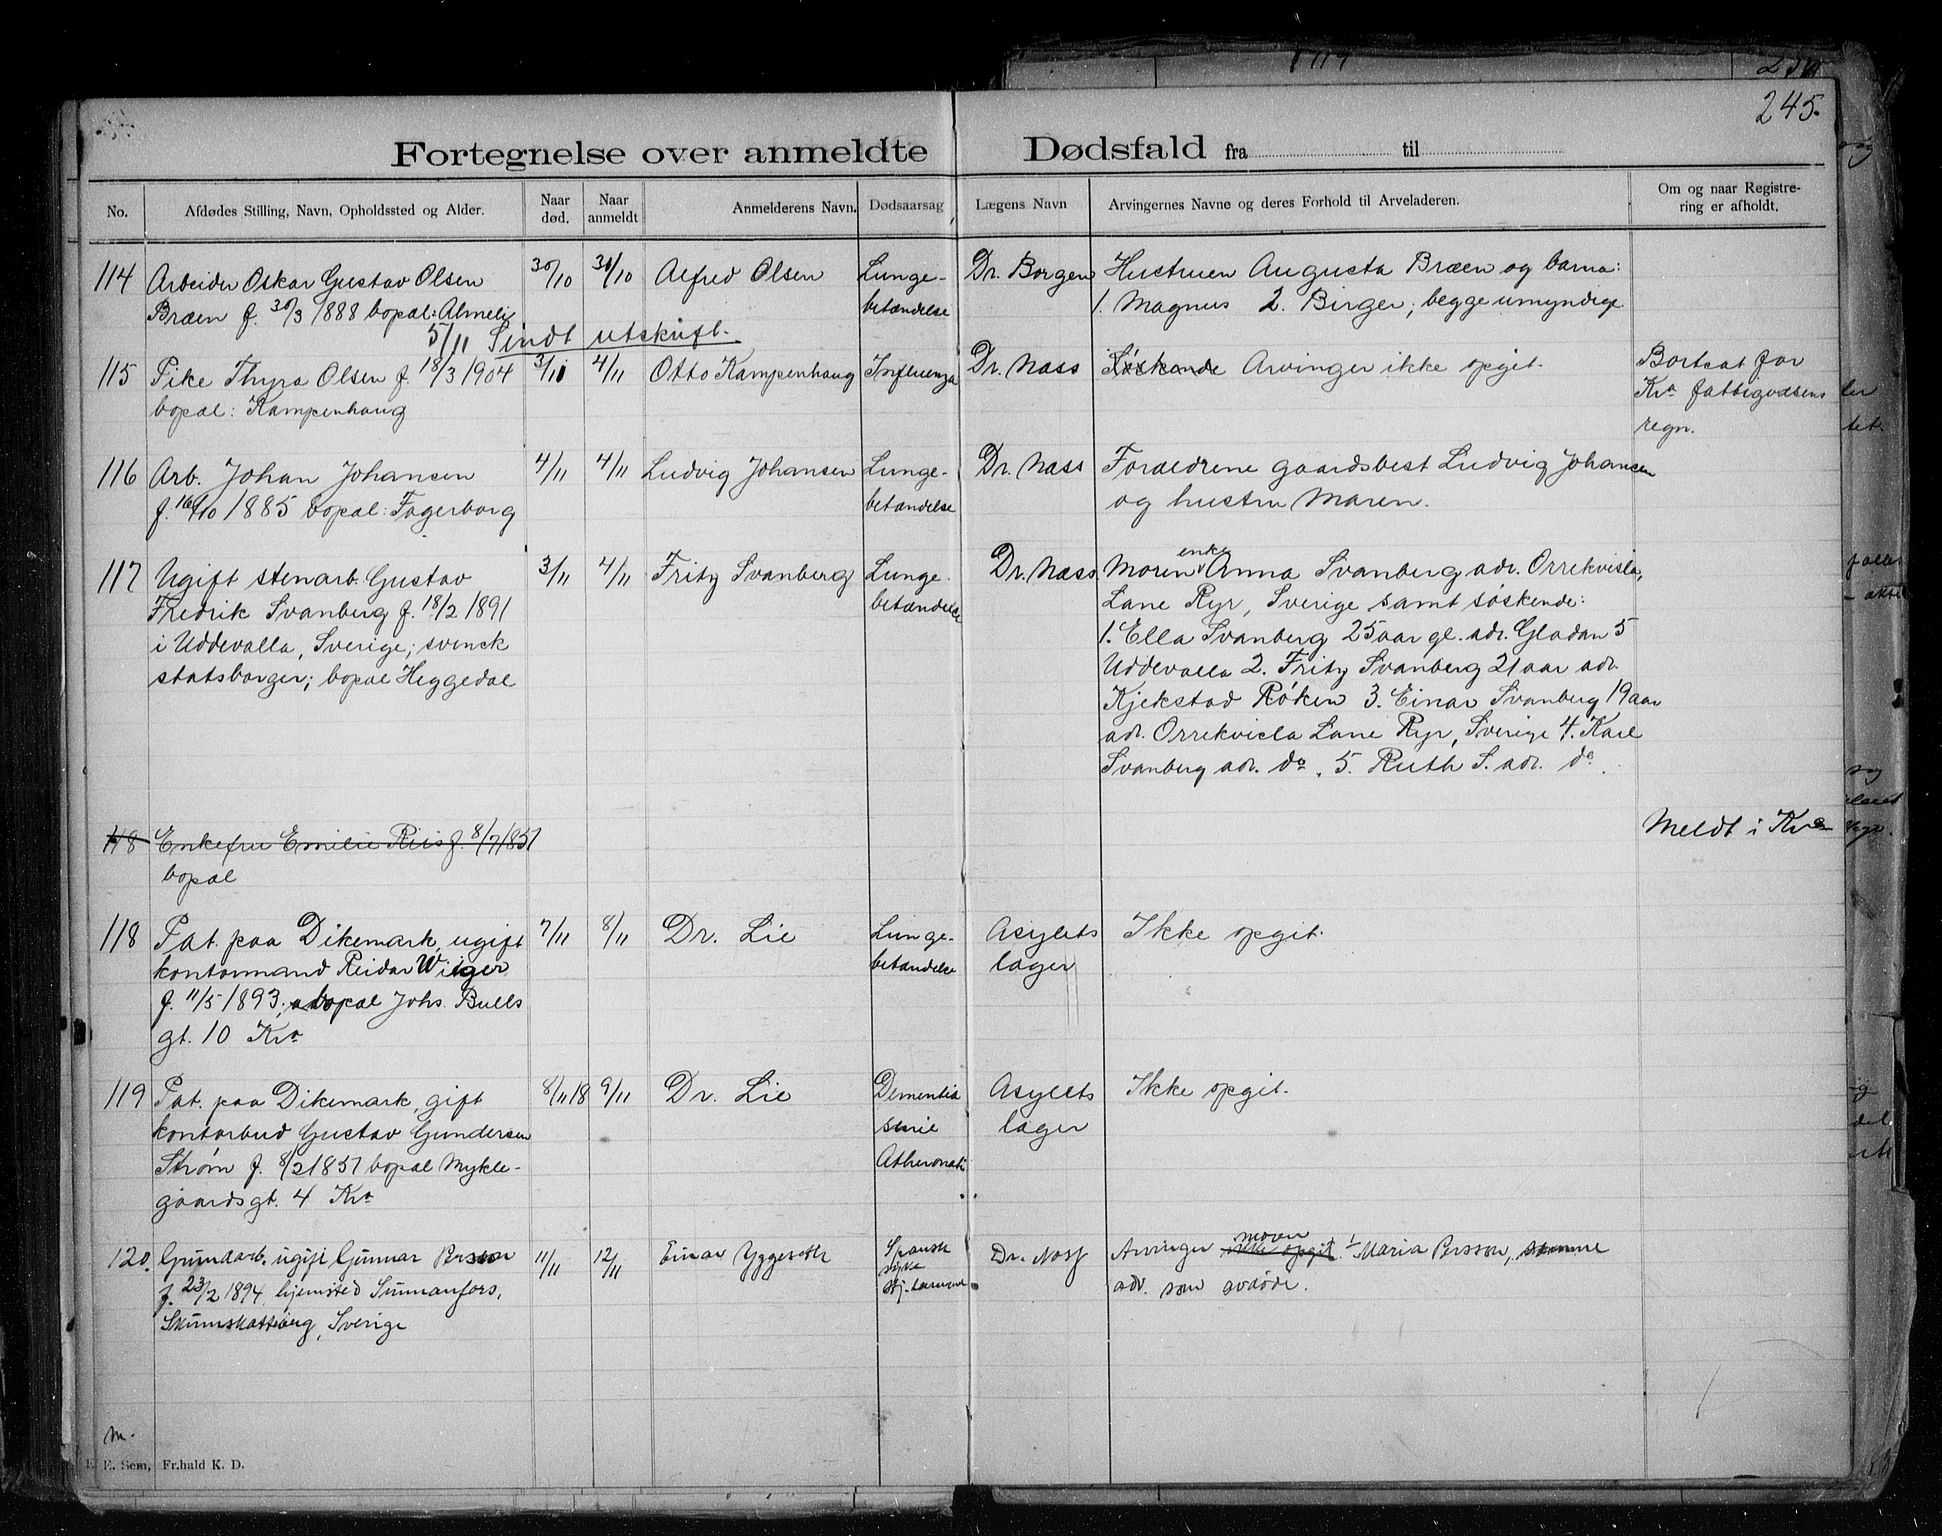 245.
Fortegnelse over anmeldte Dødsfald fra til
No.
Afdødes Stilling, Navn, Opholdssted og Alder.
Naar død.
Naar anmeldt
Anmelderens Navn.
Dødsaarsag
Lægens Navn
Arvingernes Navne og deres Forhold til Arveladeren.
Om og naar Registre-
ring er afholdt.
114 Arbeider Oskar Gustav Olsen 30/10 31/10 Alfred Olsen Lunge- Dr. Borgen Hustruen Augusta Bræen og barna:
Bræen f. 30/3 1888 bopal: Almeli betændelse 1. Magnus 2. Birger; begge umyndige
5/11 Sindt utskrift.
115 Pike Thyra Olsen f. 18/3 1904 3/11 4/11 Otto Kampenhaug Influenza Dr. Nass Søskende Arvinger ikke opgit. Bortsat for
bopæl: Kampenhaug Kra fattigvæsens
regn.
116 Arb. Johan Johansen 4/11 4/11 Ludvig Johansen Lunge- Dr. Nass Forældrene gaardsbest Ludvig Johansen
f. 16/10 1885 bopæl: Fagerborg betændelse og hustru Maren.
117 Ugift stenarb. Gustav 3/11 4/11 Fritz Svanberg Lunge- Dr. Nass. Moren enke Anna Svanberg adr. Orrekvisla,
Fredrik Svanberg f. 18/2 1891 betændelse Lane Ryr, Sverige samt søskende:
i Uddevalla, Sverige; svensk 1. Ella Svanberg 25 aar gl. adr. Gladan 5
statsborger; bopæl Heggedal Uddevalla 2. Fritz Svanberg 21 aar adr.
Kjekstad Røken 3. Einar Svanberg 19 aar
adr. Orrekvisla Lane Ryr, Sverige 4. Karl
Svanberg adr. do. 5. Ruth S. adr. do.
118 Enkefru Emilie Riis f. 8/7 1851 Meldt i Kra
bopæl
118 Pat. paa Dikemark, ugift 7/11 8/11 Dr. Lie Lunge- Asylets Ikke opgit.
kontormand Reidar Wiger betændelse læger
f. 11/5 1893; bopæl Johs. Bulls
gt. 10 Kra
119 Pat. paa Dikemark, gift 8/11 18 9/11 Dr. Lie Dementia Asylets Ikke opgit.
kontorbud Gustav Gundersen læger
Strøm f. 8/2 1851 bopæl Mykle-
gaardsgt. 4 Kra
120. Grundarb. ugift Gunnar Persson 11/11 12/11 Einar Yggeseth Spansk Dr. Nass Arvinger ikke opgit. moren 1/ Maria Persson, samme
f. 23/2 1894 hjemsted Sunnanfors, syke adr. som avdøde.
Skinnskatteberg, Sverige
m.
E. Sem, Fr.hald K. D.